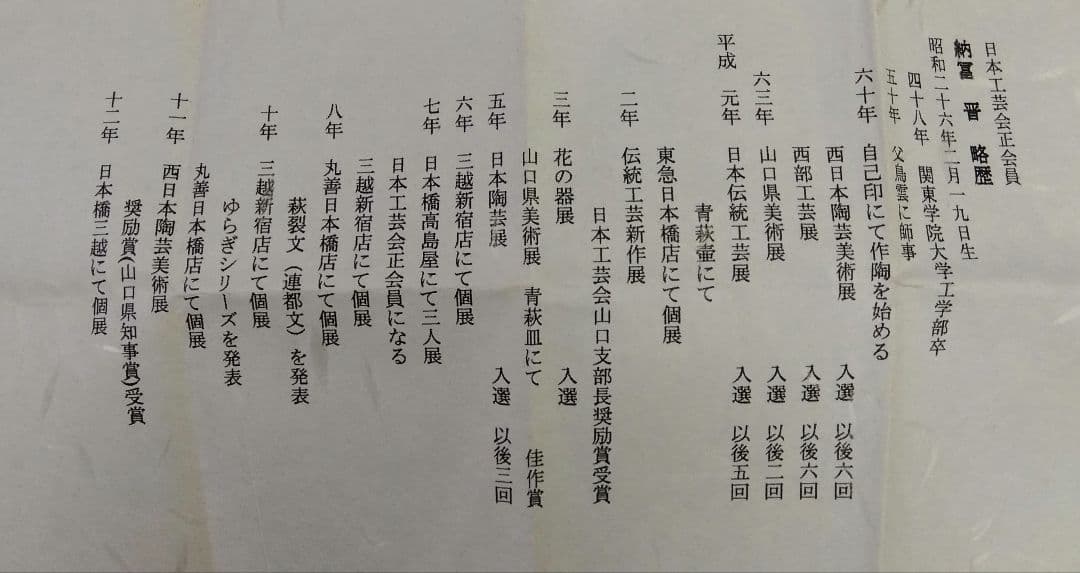 日本工芸会正会員
納冨 晋 略歴
昭和二十六年二月一九日生
四十八年 関東学院大学工学部卒
五十年 父鳥雲に師事
六十年 自己印にて作陶を始める
西日本陶芸美術展 入選 以後六回
西部工芸展 入選 以後六回
六三年 山口県美術展 入選 以後二回
平成 元年 日本伝統工芸展 入選 以後五回
青萩壷にて
東急日本橋店にて個展
二年 伝統工芸新作展
日本工芸会山口支部長奨励賞受賞
三年 花の器展 入選
山口県美術展 青萩皿にて 佳作賞
五年 日本陶芸展 入選 以後三回
六年 三越新宿店にて個展
七年 日本橋高島屋にて三人展
日本工芸会正会員になる
三越新宿店にて個展
八年 丸善日本橋店にて個展
萩裂文（連都文）を発表
十年 三越新宿店にて個展
ゆらぎシリーズを発表
丸善日本橋店にて個展
十一年 西日本陶芸美術展
奨励賞(山口県知事賞)受賞
十二年 日本橋三越にて個展